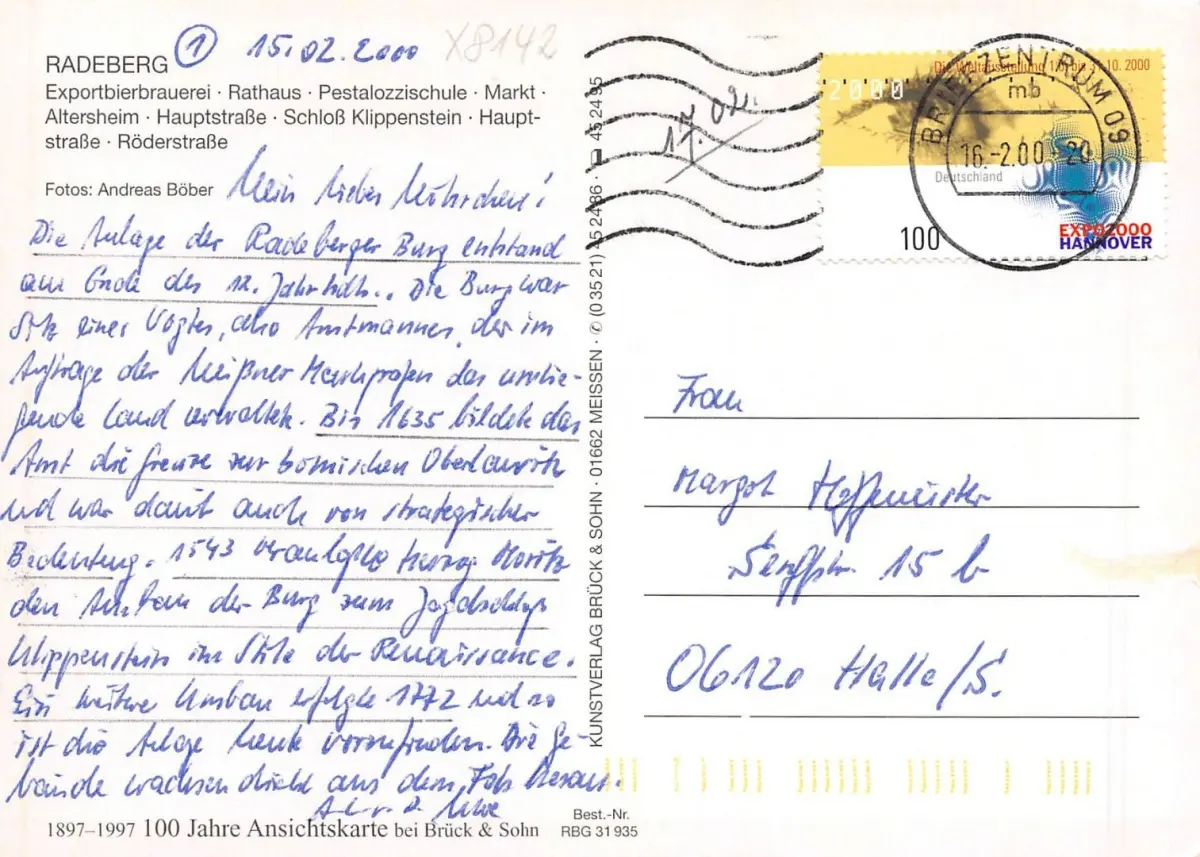 RADEBERG
① 15.02.2000
X8142
Exportbierbrauerei · Rathaus · Pestalozzischule · Markt ·
Altersheim · Hauptstraße · Schloß Klippenstein · Haupt-
straße · Röderstraße
Fotos: Andreas Böber
Mein liebes Möhrchen!
Die Anlage der Radeberger Burg entstand
am Ende des 12. Jahrhdts.. Die Burg war
Sitz eines Vogtes, also Amtmannes, der im
Auftrage der Meißner Markgrafen das umlie-
gende Land verwaltete. Bis 1635 bildete das
Amt die Grenze zur bömischen Oberlausitz
und war damit auch von strategischer
Bedeutung. 1543 veranlaßte Herzog Moritz
den Umbau der Burg zum Jagdschloß
Klippenstein im Stile der Renaissance.
Ein weiterer Umbau erfolgte 1772 und so
ist die Anlage heute vorzufinden. Die Ge-
bäude wachsen direkt aus dem Fels heraus.
Uwe
1897–1997 100 Jahre Ansichtskarte bei Brück & Sohn
Best.-Nr.
RBG 31 935
KUNSTVERLAG BRÜCK & SOHN · 01662 MEISSEN · ✆ (03521) 45 24 86 · 45 24 95
17.02.
Die Weltausstellung 1.6. bis 31.10.2000
2000
Deutschland
100
EXPO2000
HANNOVER
BRIEFZENTRUM 09
mb
16.-2.00-20
Frau
Margot Hoffmeister
15 b
06120 Halle/S.